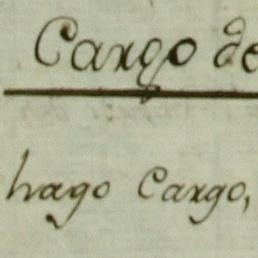 Cargo de
hago Cargo,